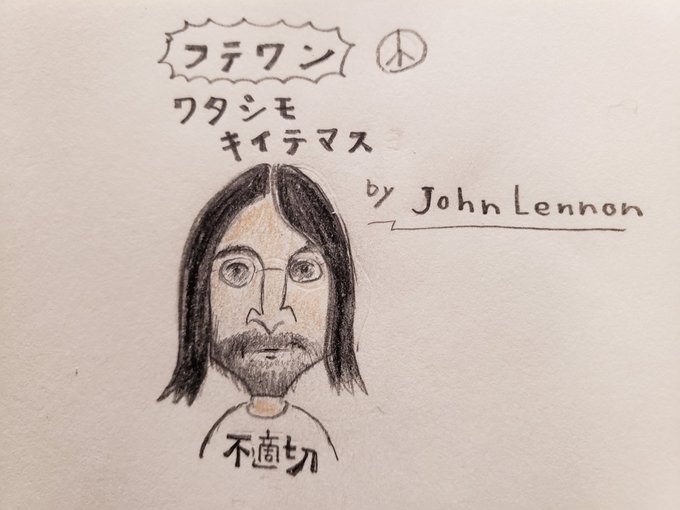 フテワン
ワタシモ
キイテマス
by John Lennon
不適切